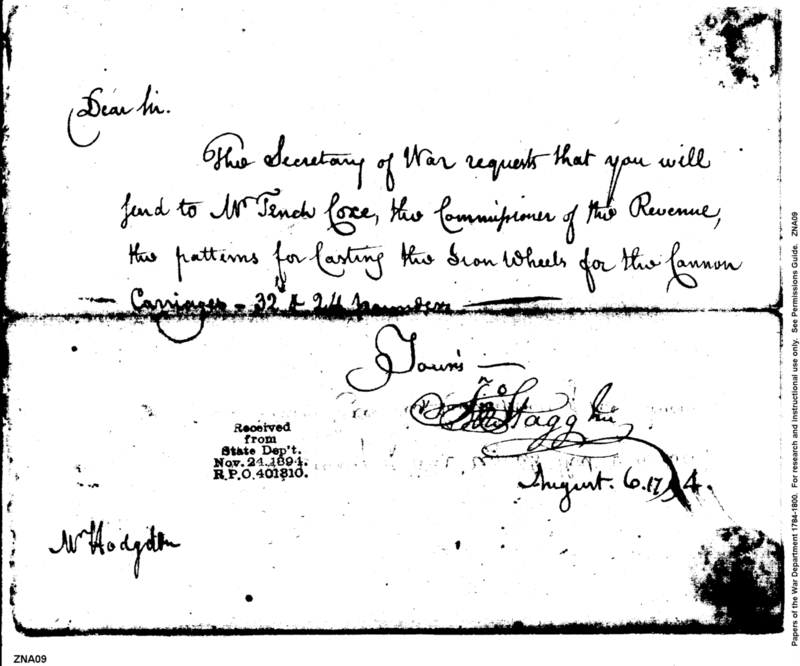 Dear Sir.
The Secretary of War requests that you will
send to Mr Tench Coxe, the Commissioner of the Revenue,
the patterns for Casting the Iron Wheels for the Cannon
Carriages – 32 & 24 pounders
Yours
Jno Stagg Jur
August. 6. 1794.
Received
from
State Dep't.
Nov. 24. 1894.
R.P.O. 401310.
Mr Hodgdon
ZNA09
Papers of the War Department 1784-1800. For research and instructional use only. See Permissions Guide. ZNA09